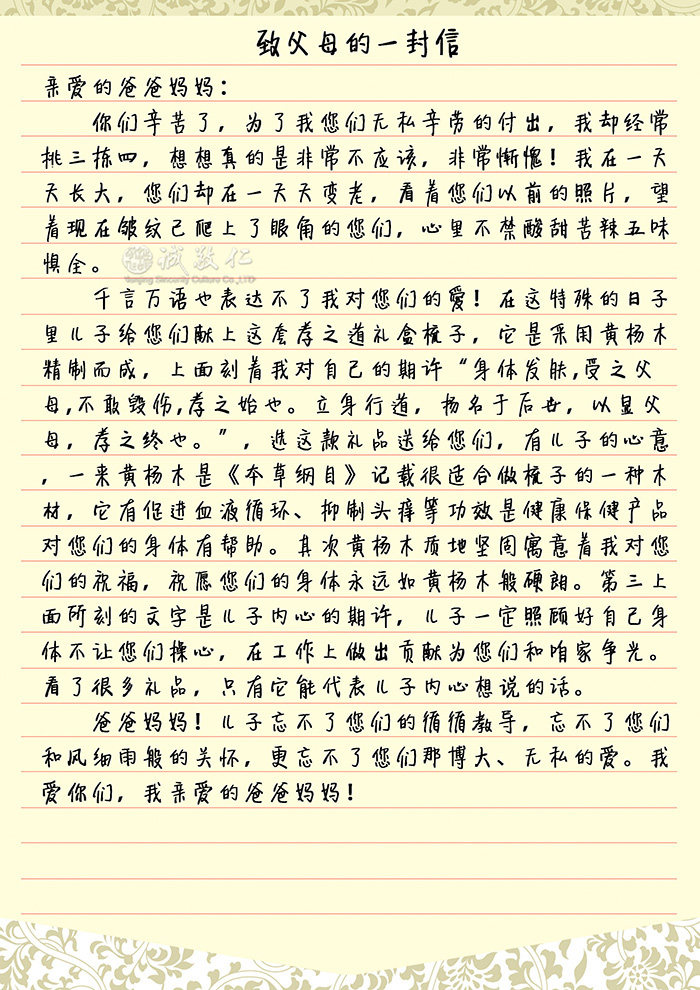 致父母的一封信
亲爱的爸爸妈妈：
你们辛苦了，为了我您们无私辛劳的付出，我却经常
挑三拣四，想想真的是非常不应该，非常惭愧！我在一天
天长大，您们却在一天天变老，看着您们以前的照片，望
着现在皱纹已爬上了眼角的您们，心里不禁酸甜苦辣五味
惧全。
诚敬仁
千言万语也表达不了我对您们的爱！在这特殊的日子
里儿子给您们献上这套孝之道礼盒梳子，它是采用黄杨木
精制而成，上面刻着我对自己的期许“身体发肤,受之父
母,不敢毁伤,孝之始也。立身行道，扬名于后世，以显父
母，孝之终也。”，选这款礼品送给您们，有儿子的心意
，一来黄杨木是《本草纲目》记载很适合做梳子的一种木
材，它有促进血液循环、抑制头痒等功效是健康保健产品
对您们的身体有帮助。其次黄杨木质地坚固寓意着我对您
们的祝福，祝愿您们的身体永远如黄杨木般硬朗。第三上
面所刻的文字是儿子内心的期许，儿子一定照顾好自己身
体不让您们操心，在工作上做出贡献为您们和咱家争光。
看了很多礼品，只有它能代表儿子内心想说的话。
爸爸妈妈！儿子忘不了您们的循循教导，忘不了您们
和风细雨般的关怀，更忘不了您们那博大、无私的爱。我
爱你们，我亲爱的爸爸妈妈！